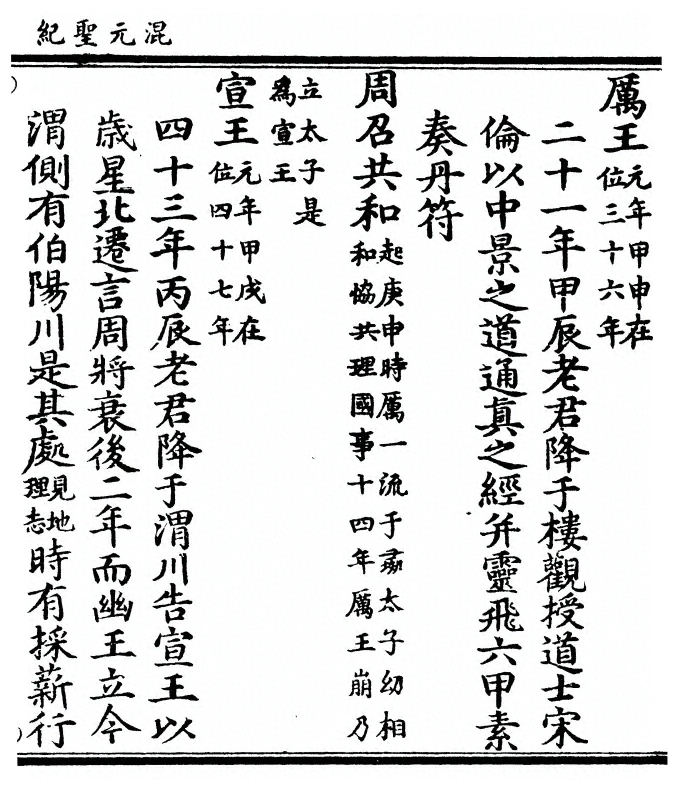 混元聖紀
厲王元年甲申在位三十六年
二十一年甲辰老君降于樓觀授道士宋
倫以中景之道通眞之經并靈飛六甲素
奏丹符
周召共和起庚申時厲一流于彘太子幼相和協共理國事十四年厲王崩乃
立太子是為宣王
宣王元年甲戌在位四十七年
四十三年丙辰老君降于渭川告宣王以
歳星北遷言周將衰後二年而幽王立今
渭側有伯陽川是其處見地理志時有採薪行